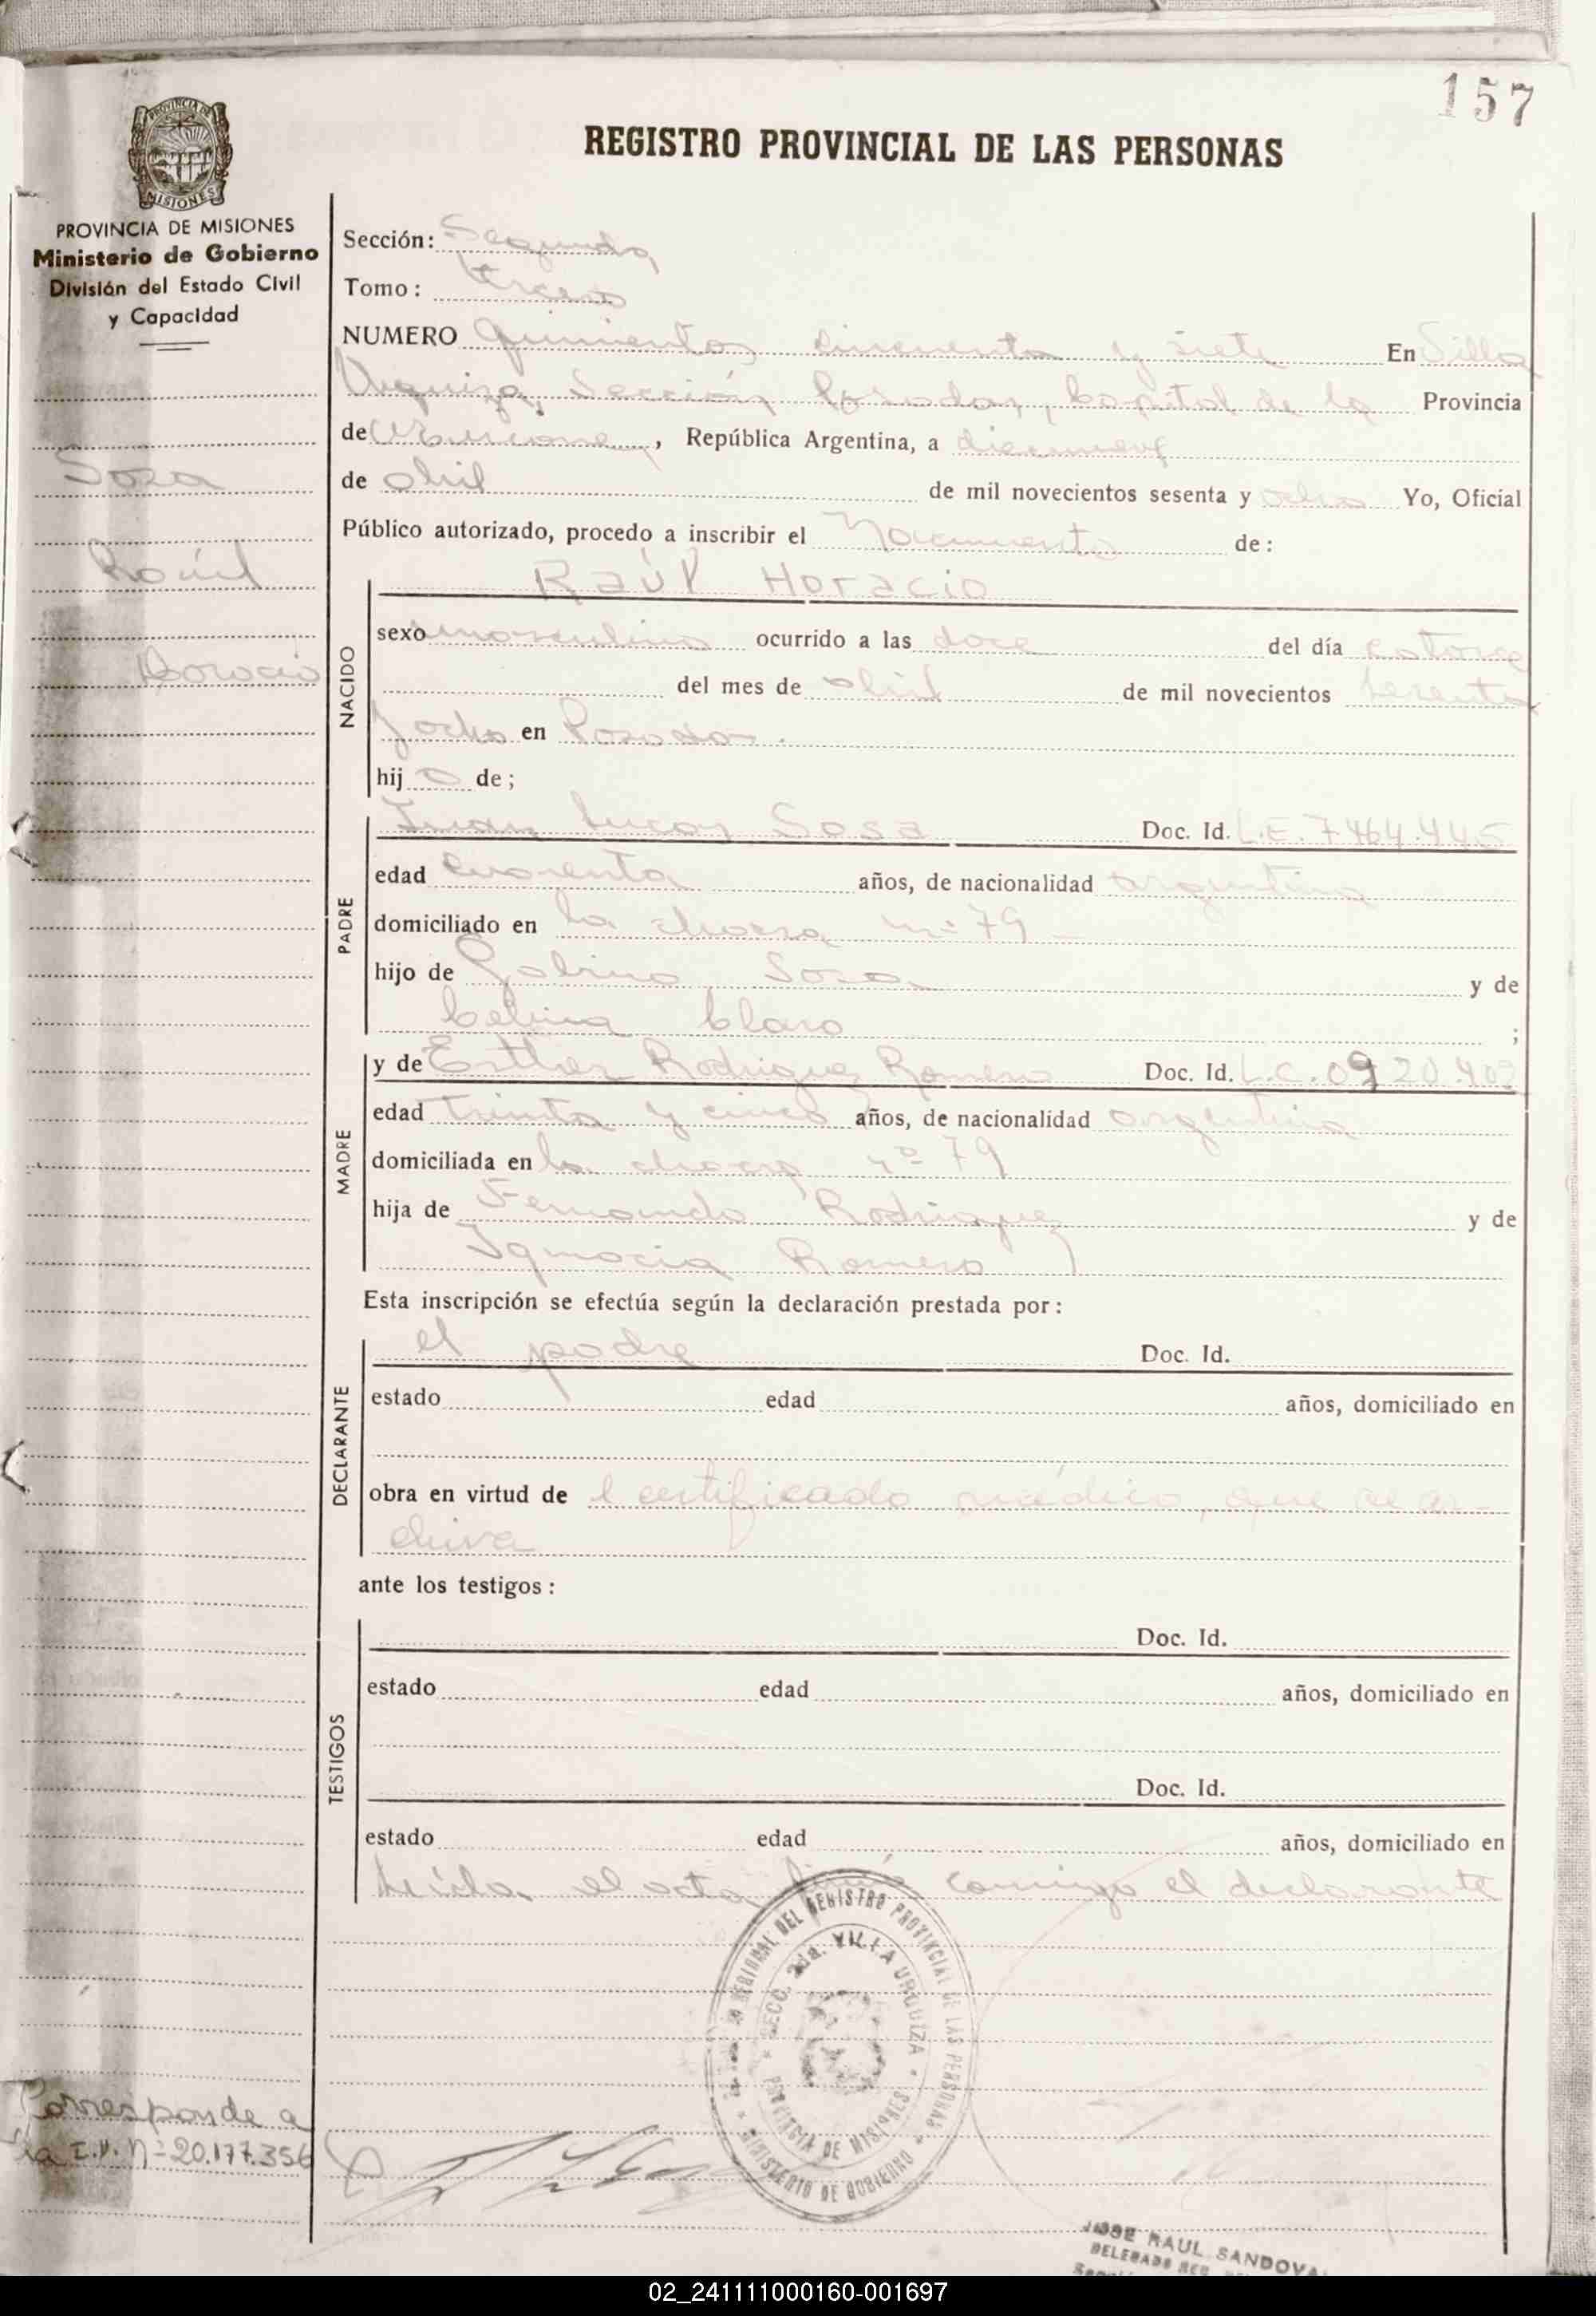 157
REGISTRO PROVINCIAL DE LAS PERSONAS
PROVINCIA DE MISIONES
Ministerio de Gobierno
División del Estado Civil
y Capacidad
Sosa
Raúl
Horacio
Sección: Segunda
Tomo: tercero
NUMERO Quinientos cincuenta y siete En Villa
Urquiza, Sección Posadas, Capital de la Provincia
de Misiones, República Argentina, a diecinueve
de abril de mil novecientos sesenta y ocho Yo, Oficial
Público autorizado, procedo a inscribir el Nacimiento de:
NACIDO
Raúl Horacio
sexo masculino ocurrido a las doce del día catorce
del mes de abril de mil novecientos sesenta
y ocho en Posadas.
hij o de;
PADRE
Juan Lucas Sosa Doc. Id. L.E. 7.464.445
edad cuarenta años, de nacionalidad argentina
domiciliado en la chacra nº 79
hijo de Gabino Sosa y de
Celina Claro ;
MADRE
y de Esther Rodriguez Romero Doc. Id. L.C. 0920.402
edad treinta y cinco años, de nacionalidad argentina
domiciliada en la chacra nº 79
hija de Fernando Rodriguez y de
Ignacia Romero
Esta inscripción se efectúa según la declaración prestada por:
DECLARANTE
el padre Doc. Id.
estado edad años, domiciliado en
obra en virtud de l certificado médico, que se ar-
chiva
ante los testigos:
TESTIGOS
Doc. Id.
estado edad años, domiciliado en
Doc. Id.
estado edad años, domiciliado en
Leída el acta firmó conmigo el declarante
REGIONAL DEL REGISTRO PROVINCIAL DE LAS PERSONAS
SECC. 2da. VILLA URQUIZA
PROVINCIA DE MISIONES
MINISTERIO DE GOBIERNO
Corresponde a
la L.M. Nº 20.177.356
JOSE RAUL SANDOVAL
DELEGADO REG.
02_241111000160-001697